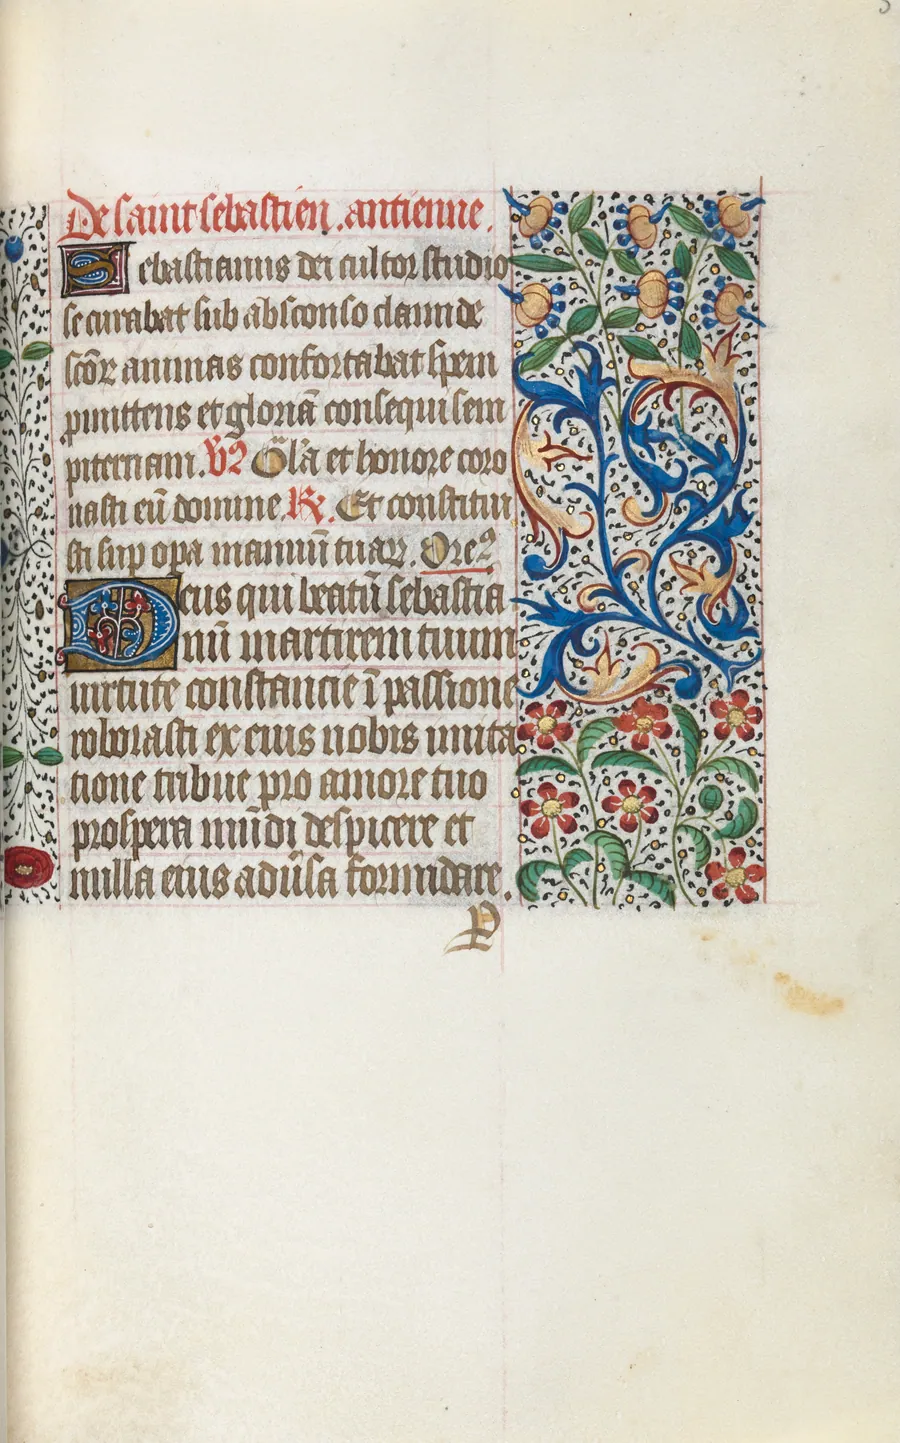 De saint sebastien. antienne.
Sebastianus dei cultor studio
se curabat sub absconso clamide
scõꝝ animas confortabat spem
pmittens et gloriã consequi sem
piternam. V᷒ Gl̃a et honore coro
nasti eũ domine. ℟. Et constitui
sti sup opa manuũ tuaꝝ. Oreꝰ
Deus qui beatũ sebastia
nũ martirem tuum
uirtute constancie ĩ passione
roborasti ex eius nobis imita
tione tribue pro amore tuo
prospera mũdi despicere et
nulla eius aduersa formidare.
P